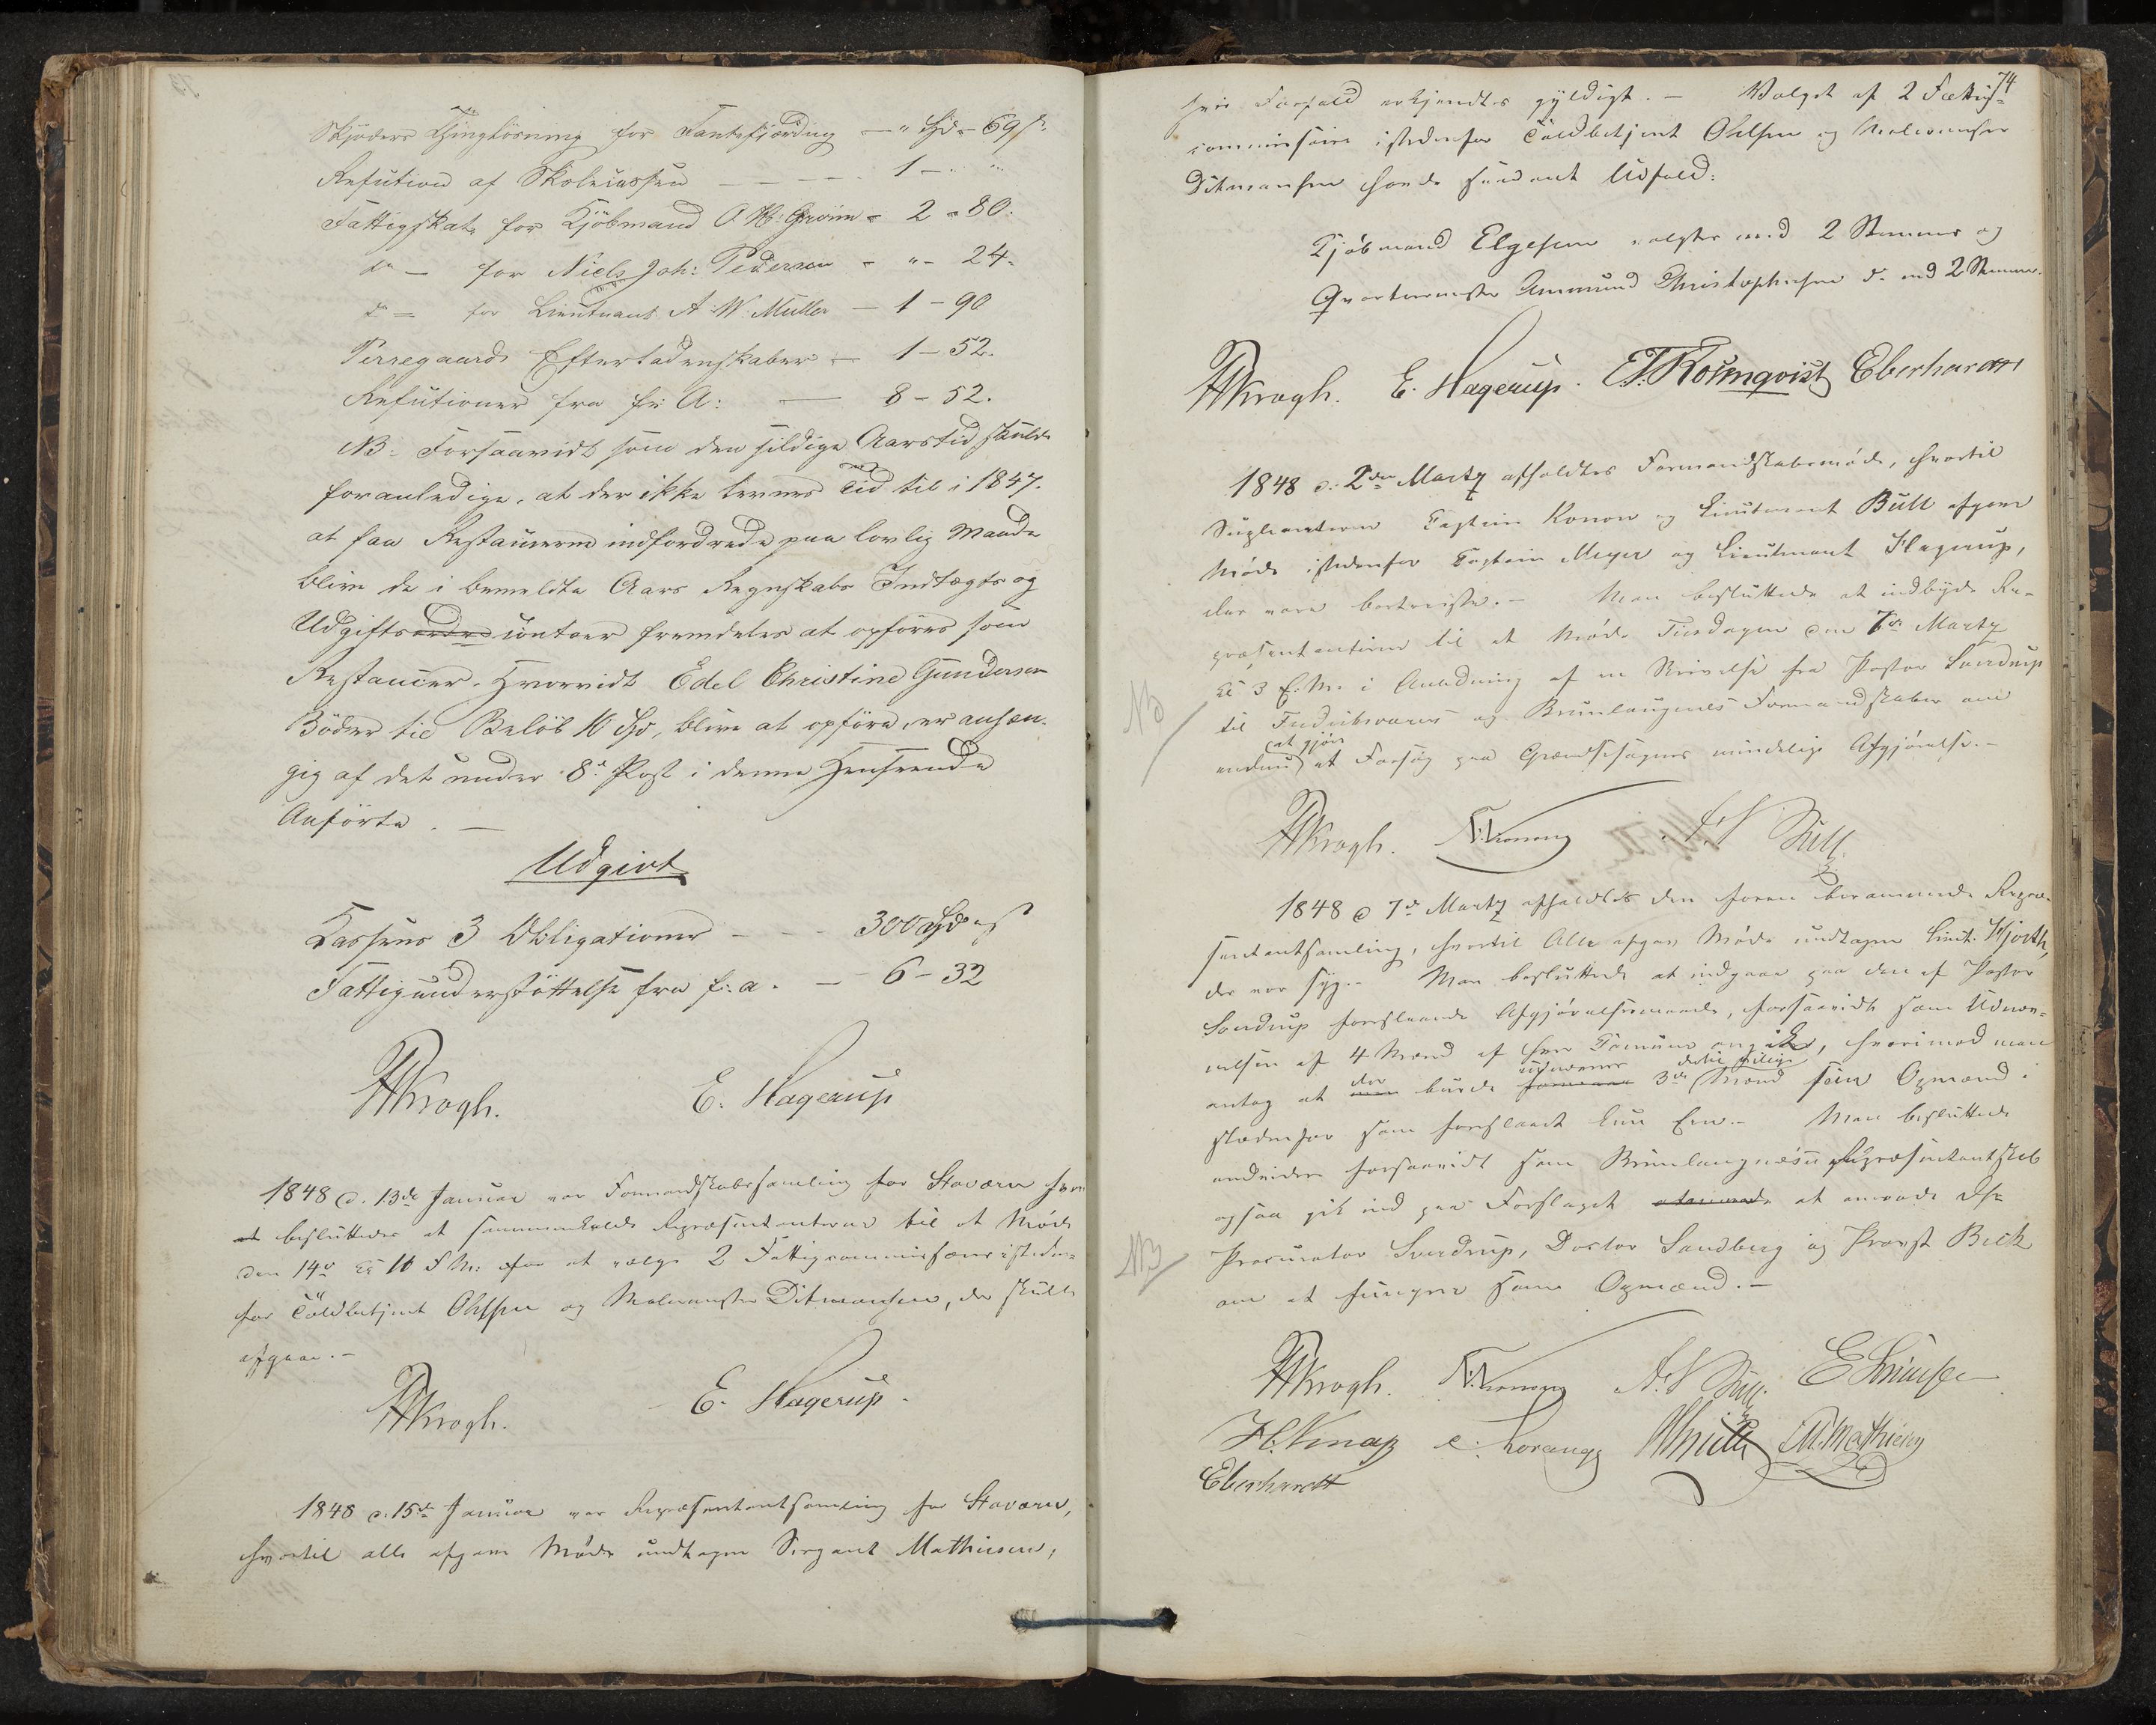 Skjøders Thinglösning for Fantefjærding — " Spd – 69 ß
Refution af Skolecassen — — — 1 — "
Fattigskat for Kjöbmand O. H. Grøim - 2 - 80.
do — for Niels Joh: Pedersen - " - 24.
do — for Lieutnant A. W. Müller — 1 – 90
Perregaards Efterladenskaber — 1 – 52.
Refutioner fra f: A: — 8 – 52.
NB: Forsaavidt som den sildige Aarstid skulde
foranledige, at der ikke levnes Tid til i 1847.
at faa Restancerne indfordrede paa lovlig Maade
blive de i bemeldte Aars Regnskabs Indtægts og
Udgifts contoer fremdeles at opføres som
Restancer. Hvorvidt Edel Christine Gundersen
Böder til Belöb 10 Spd, blive at opføre, er afhæn-
gig af det under 8de Post i denne Henseende
Anförte. —
Udgivt
Cassens 3 Obligationer — — — 300 Spd " ß
Fattigunderstöttelse fra f: a. — 6 – 32
Krogh. E. Hagerup
1848 d. 13de Januar var Formandskabssamling for Staværn hvor
besluttedes at sammenkalde Repræsentanterne til et Møde
den 14de Kl 10 F.M: for at vælge 2 Fattigcommissærer istedet-
for Toldbetjent Ohlsen og Malermester Ditmansen, der skulle
afgaae. —
Krogh. E. Hagerup.
1848 d. 15de Januar var Repræsentantsamling for Staværn,
hvortil alle afgave Møde undtagen Sergeant Mathiesen,
74
hvis Forfald erkjendtes gyldigt. — Valget af 2 Fattig-
commissairer istedenfor Toldbetjent Ohlsen og Malermester
Ditmansen havde saadant Udfald:
Kjøbmand Elgesem valgtes med 2 Stemmer og
Qvarteermester Ammund Christophersen do med 2 Stemmer.
Krogh. E. Hagerup. Holmqvist Eberhardt
1848 d. 2den Marty afholdtes Formandskabsmøde, hvortil
Suppleanterne Captein Konow og Lieutenant Bull afgave
Møde istedenfor Captein Meyer og Lieutnant Hagerup,
der vare bortreiste. — Man besluttede at indbyde Re-
præsentanterne til et Møde Tirsdagen den 7de Marty
Kl 3 E.M. i Anledning af en Skrivelse fra Pastor Sverdrup
NB
til Fredriksværns og Brunlaugnæs Formandskaber om
at gjøre
endnu et Forsøg paa Grændsesagens mindelige Afgjørelse. —
Krogh. Konow Bull
1848 d 7de Marty afholdtes den foran berammede Repræ-
sentantsamling, hvortil Alle afgav Møde undtagen Lieut. Hjorth,
der var syg. — Man besluttede at indgaae paa den af Pastor
Sverdrup foreslaaede Afgjørelsesmaade, forsaavidt som Udnæv-
nelsen af 4 Mænd af hver Comune angik, hvorimod man
der udnævnes dertil villige
antog at man burde 3de Mænd som Opmænd i
stedenfor som foreslaaet kun Een. — Man besluttede
endvidere forsaavidt som Brunlaugnæs's Repræsentantskab
ogsaa gik ind paa Forslaget at anmode Dhr.
NB
Procurator Sverdrup, Doctor Sandberg og Provst Beck
om at fungere som Opmænd. —
Krogh. Konow Bull.
H. Knap
Mathiesen
Eberhardt